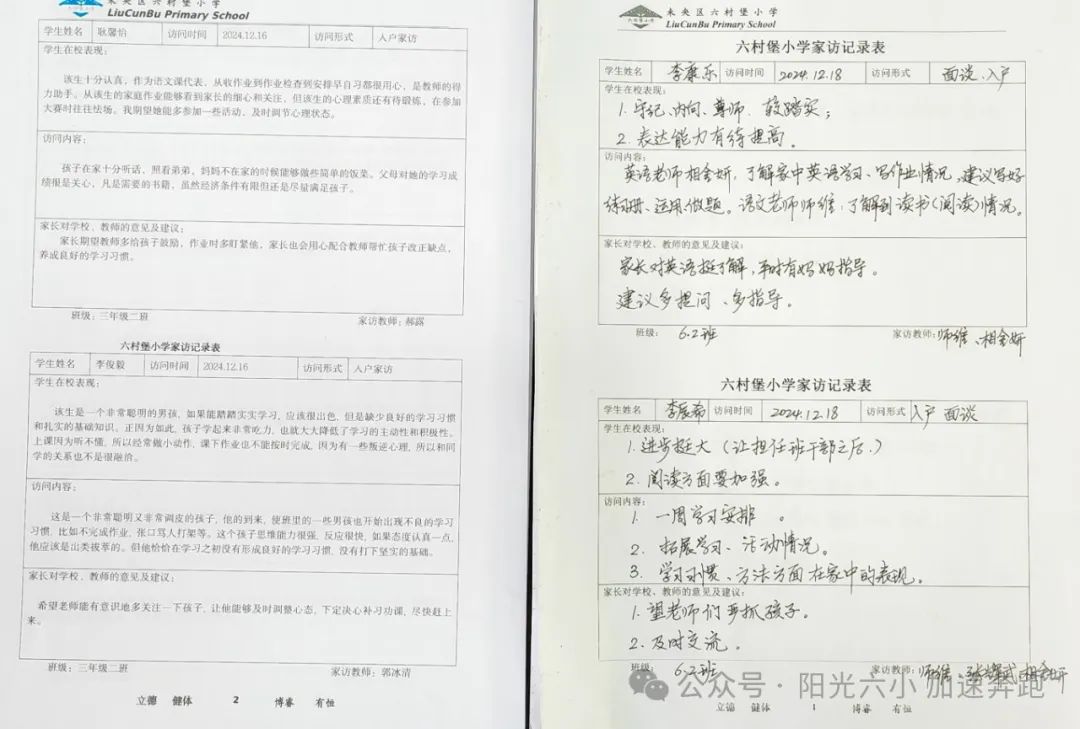 未央区六村堡小学
LiuCunBu Primary School
学生姓名 耿馨怡 访问时间 2024.12.16 访问形式 入户家访
学生在校表现:
该生十分认真,作为语文课代表,从收作业到作业检查到安排早自习都很用心,是教师的得
力助手。从该生的家庭作业能够看到家长的细心和关注,但该生的心理素质还有待锻炼,在参加
大赛时往往怯场。我期望她能多参加一些活动,及时调节心理状态。
访问内容:
孩子在家十分听话,照看弟弟,妈妈不在家的时候能够做些简单的饭菜。父母对她的学习成
绩很是关心,凡是需要的书籍,虽然经济条件有限但还是尽量满足孩子。
家长对学校、教师的意见及建议:
家长期望教师多给孩子鼓励,作业时多盯紧他,家长也会用心配合教师帮忙孩子改正缺点,
养成良好的学习习惯。
班级:三年级二班 家访教师:郝露
六村堡小学家访记录表
学生姓名 李俊毅 访问时间 2024.12.16 访问形式 入户家访
学生在校表现:
该生是一个非常聪明的男孩,如果能踏踏实实学习,应该很出色,但是缺少良好的学习习惯
和扎实的基础知识。正因为如此,孩子学起来非常吃力,也就大大降低了学习的主动性和积极性。
上课因为听不懂,所以经常做小动作,课下作业也不能按时完成,因为有一些叛逆心理,所以和同
学的关系也不是很融洽。
访问内容:
这是一个非常聪明又非常调皮的孩子,他的到来,使班里的一些男孩也开始出现不良的学习
习惯,比如不完成作业,张口骂人打架等。这个孩子思维能力很强,反应很快,如果态度认真一点,
他应该是出类拔萃的。但他恰恰在学习之初没有形成良好的学习习惯,没有打下坚实的基础。
家长对学校、教师的意见及建议:
希望老师能有意识地多关注一下孩子,让他能够及时调整心态,下定决心补习功课,尽快赶上
来。
班级:三年级二班 家访教师:郭冰清
立德 健体 2 博睿 有恒
未央区六村堡小学
LiuCunBu Primary School
六村堡小学家访记录表
学生姓名 李康乐 访问时间 2024.12.18 访问形式 面谈、入户
学生在校表现:
1. 守纪、内向、尊师、较踏实;
2. 表达能力有待提高。
访问内容:
英语老师相会妍,了解家中英语学习、写作业情况,建议写好
练习册、运用做题。语文老师师维,了解到读书(阅读)情况。
家长对学校、教师的意见及建议:
家长对英语挺了解,平时有妈妈指导。
建议多提问、多指导。
班级: 6.2班 家访教师:师维、相会妍
六村堡小学家访记录表
学生姓名 李宸希 访问时间 2024.12.18 访问形式 入户 面谈
学生在校表现:
1. 进步挺大(让担任班干部之后.)
2. 阅读方面要加强。
访问内容:
1. 一周学习安排。
2. 拓展学习、活动情况。
3. 学习习惯、方法方面在家中的表现。
家长对学校、教师的意见及建议:
1. 望老师们严抓孩子。
2. 及时交流。
班级: 6.2班 家访教师:师维、相会妍
公众号·阳光六小 加速奔跑
立德 健体 1 博睿 有恒